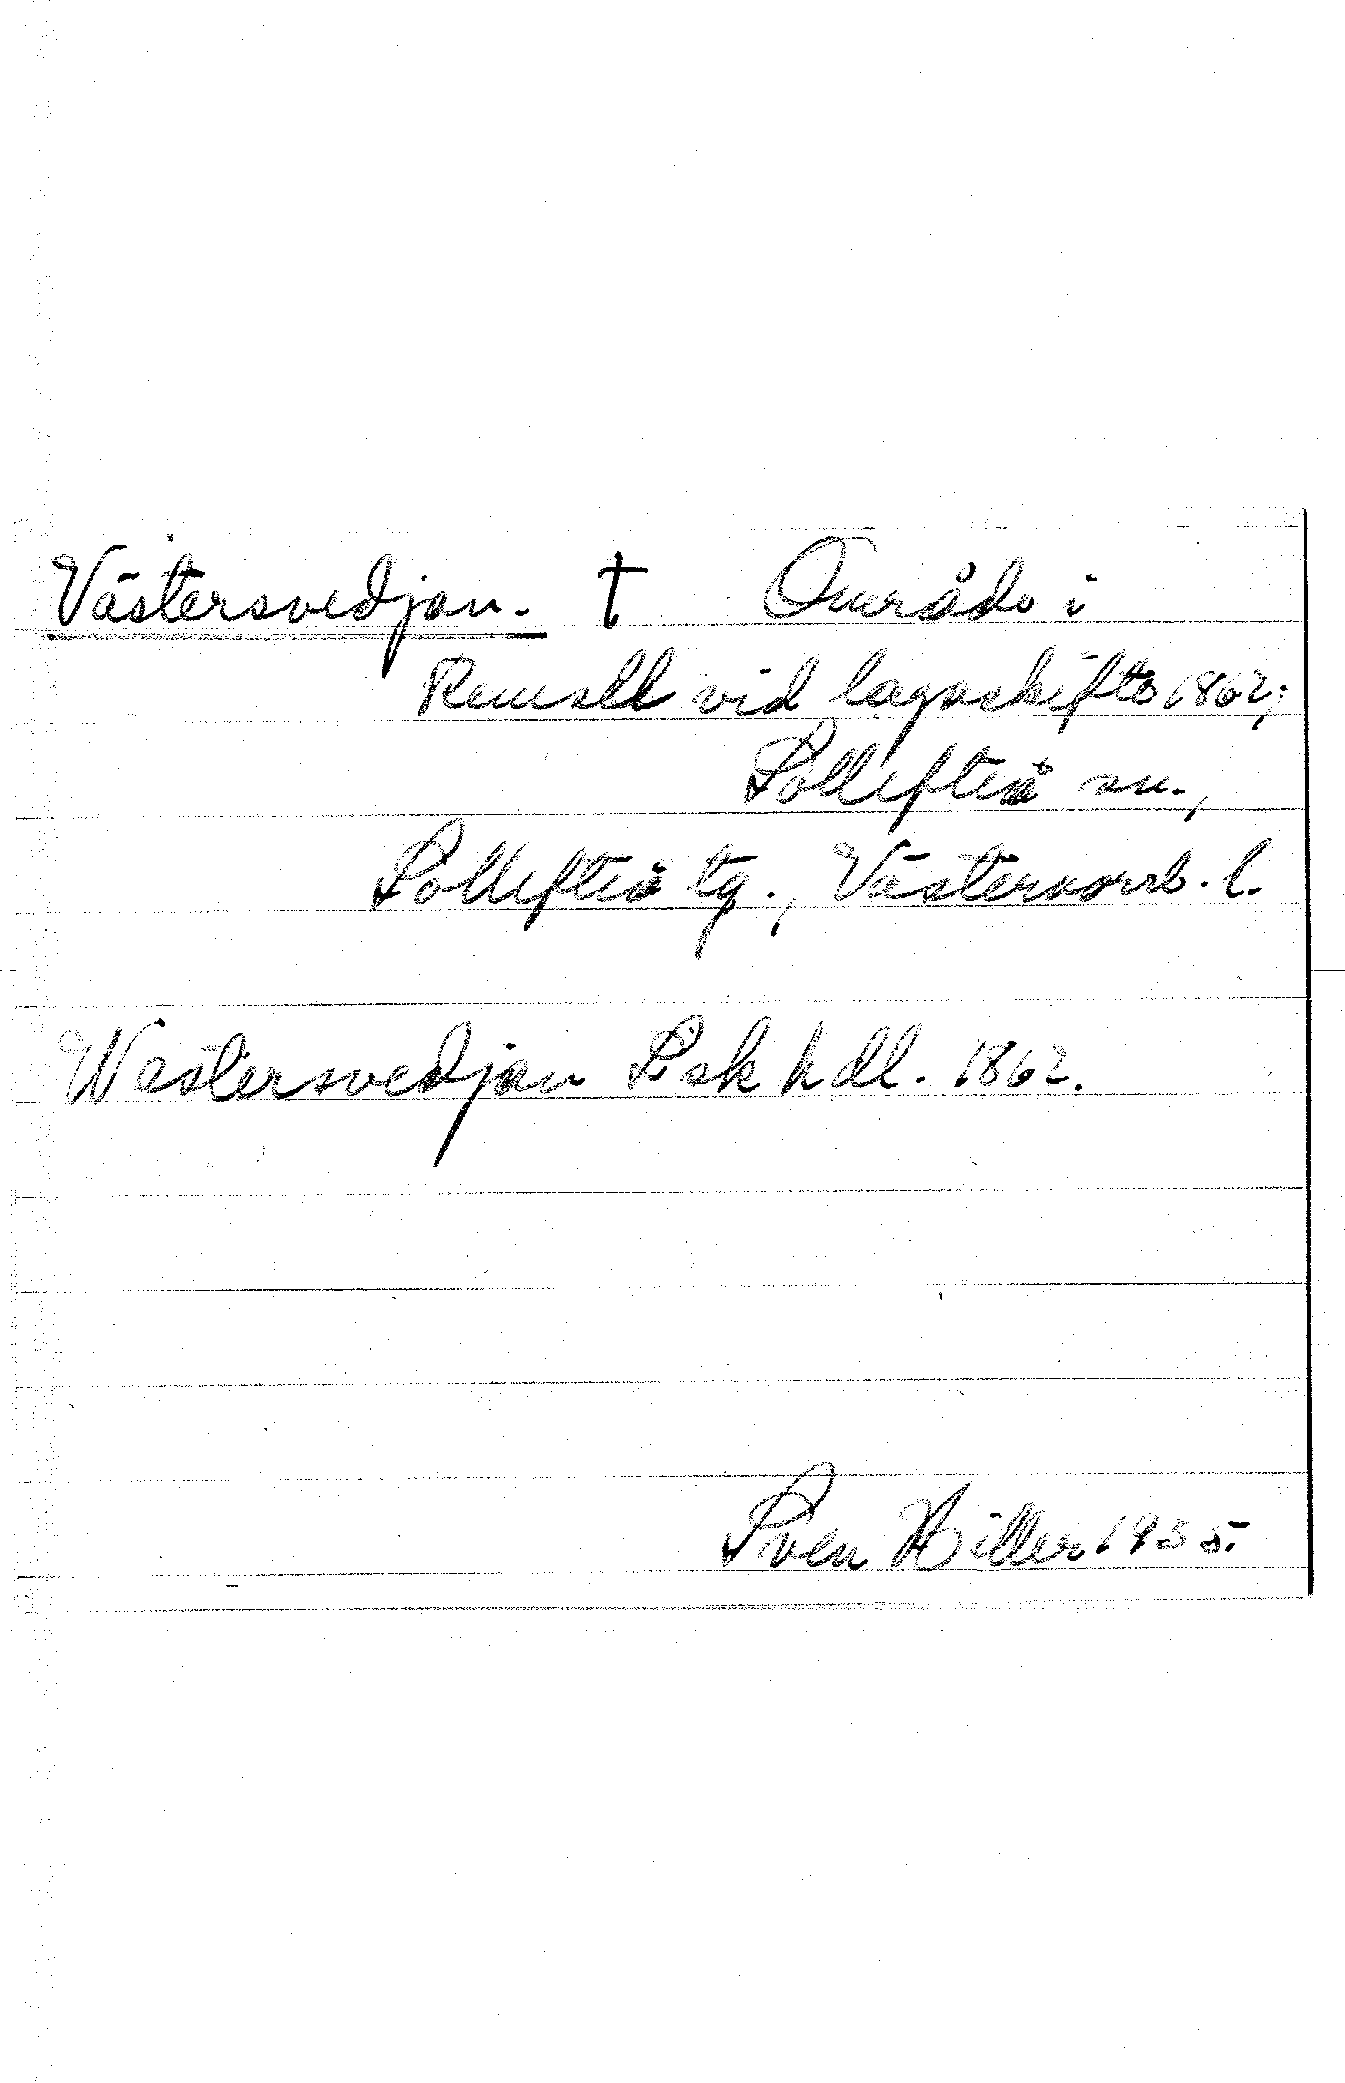 Västersvedjan. † Område i
Remsele vid lagaskifte 1862;
Sollefteå sn.,
Sollefteå tg., Västernorrl. l.
Westersvedjan Lskhdl. 1862.
Sven Hiller 1955.